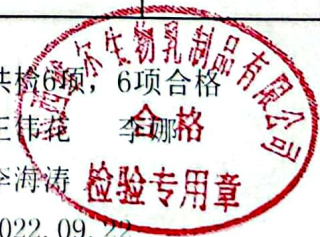 共检6项，6项合格
王伟花 李娜
李海涛
2022.09.22
尔生物乳制品有限公司
合格
检验专用章